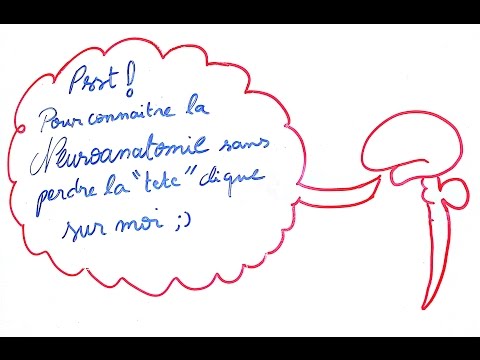 Psst !
Pour connaitre la
Neuroanatomie sans
perdre la "tete" clique
sur moi ;)